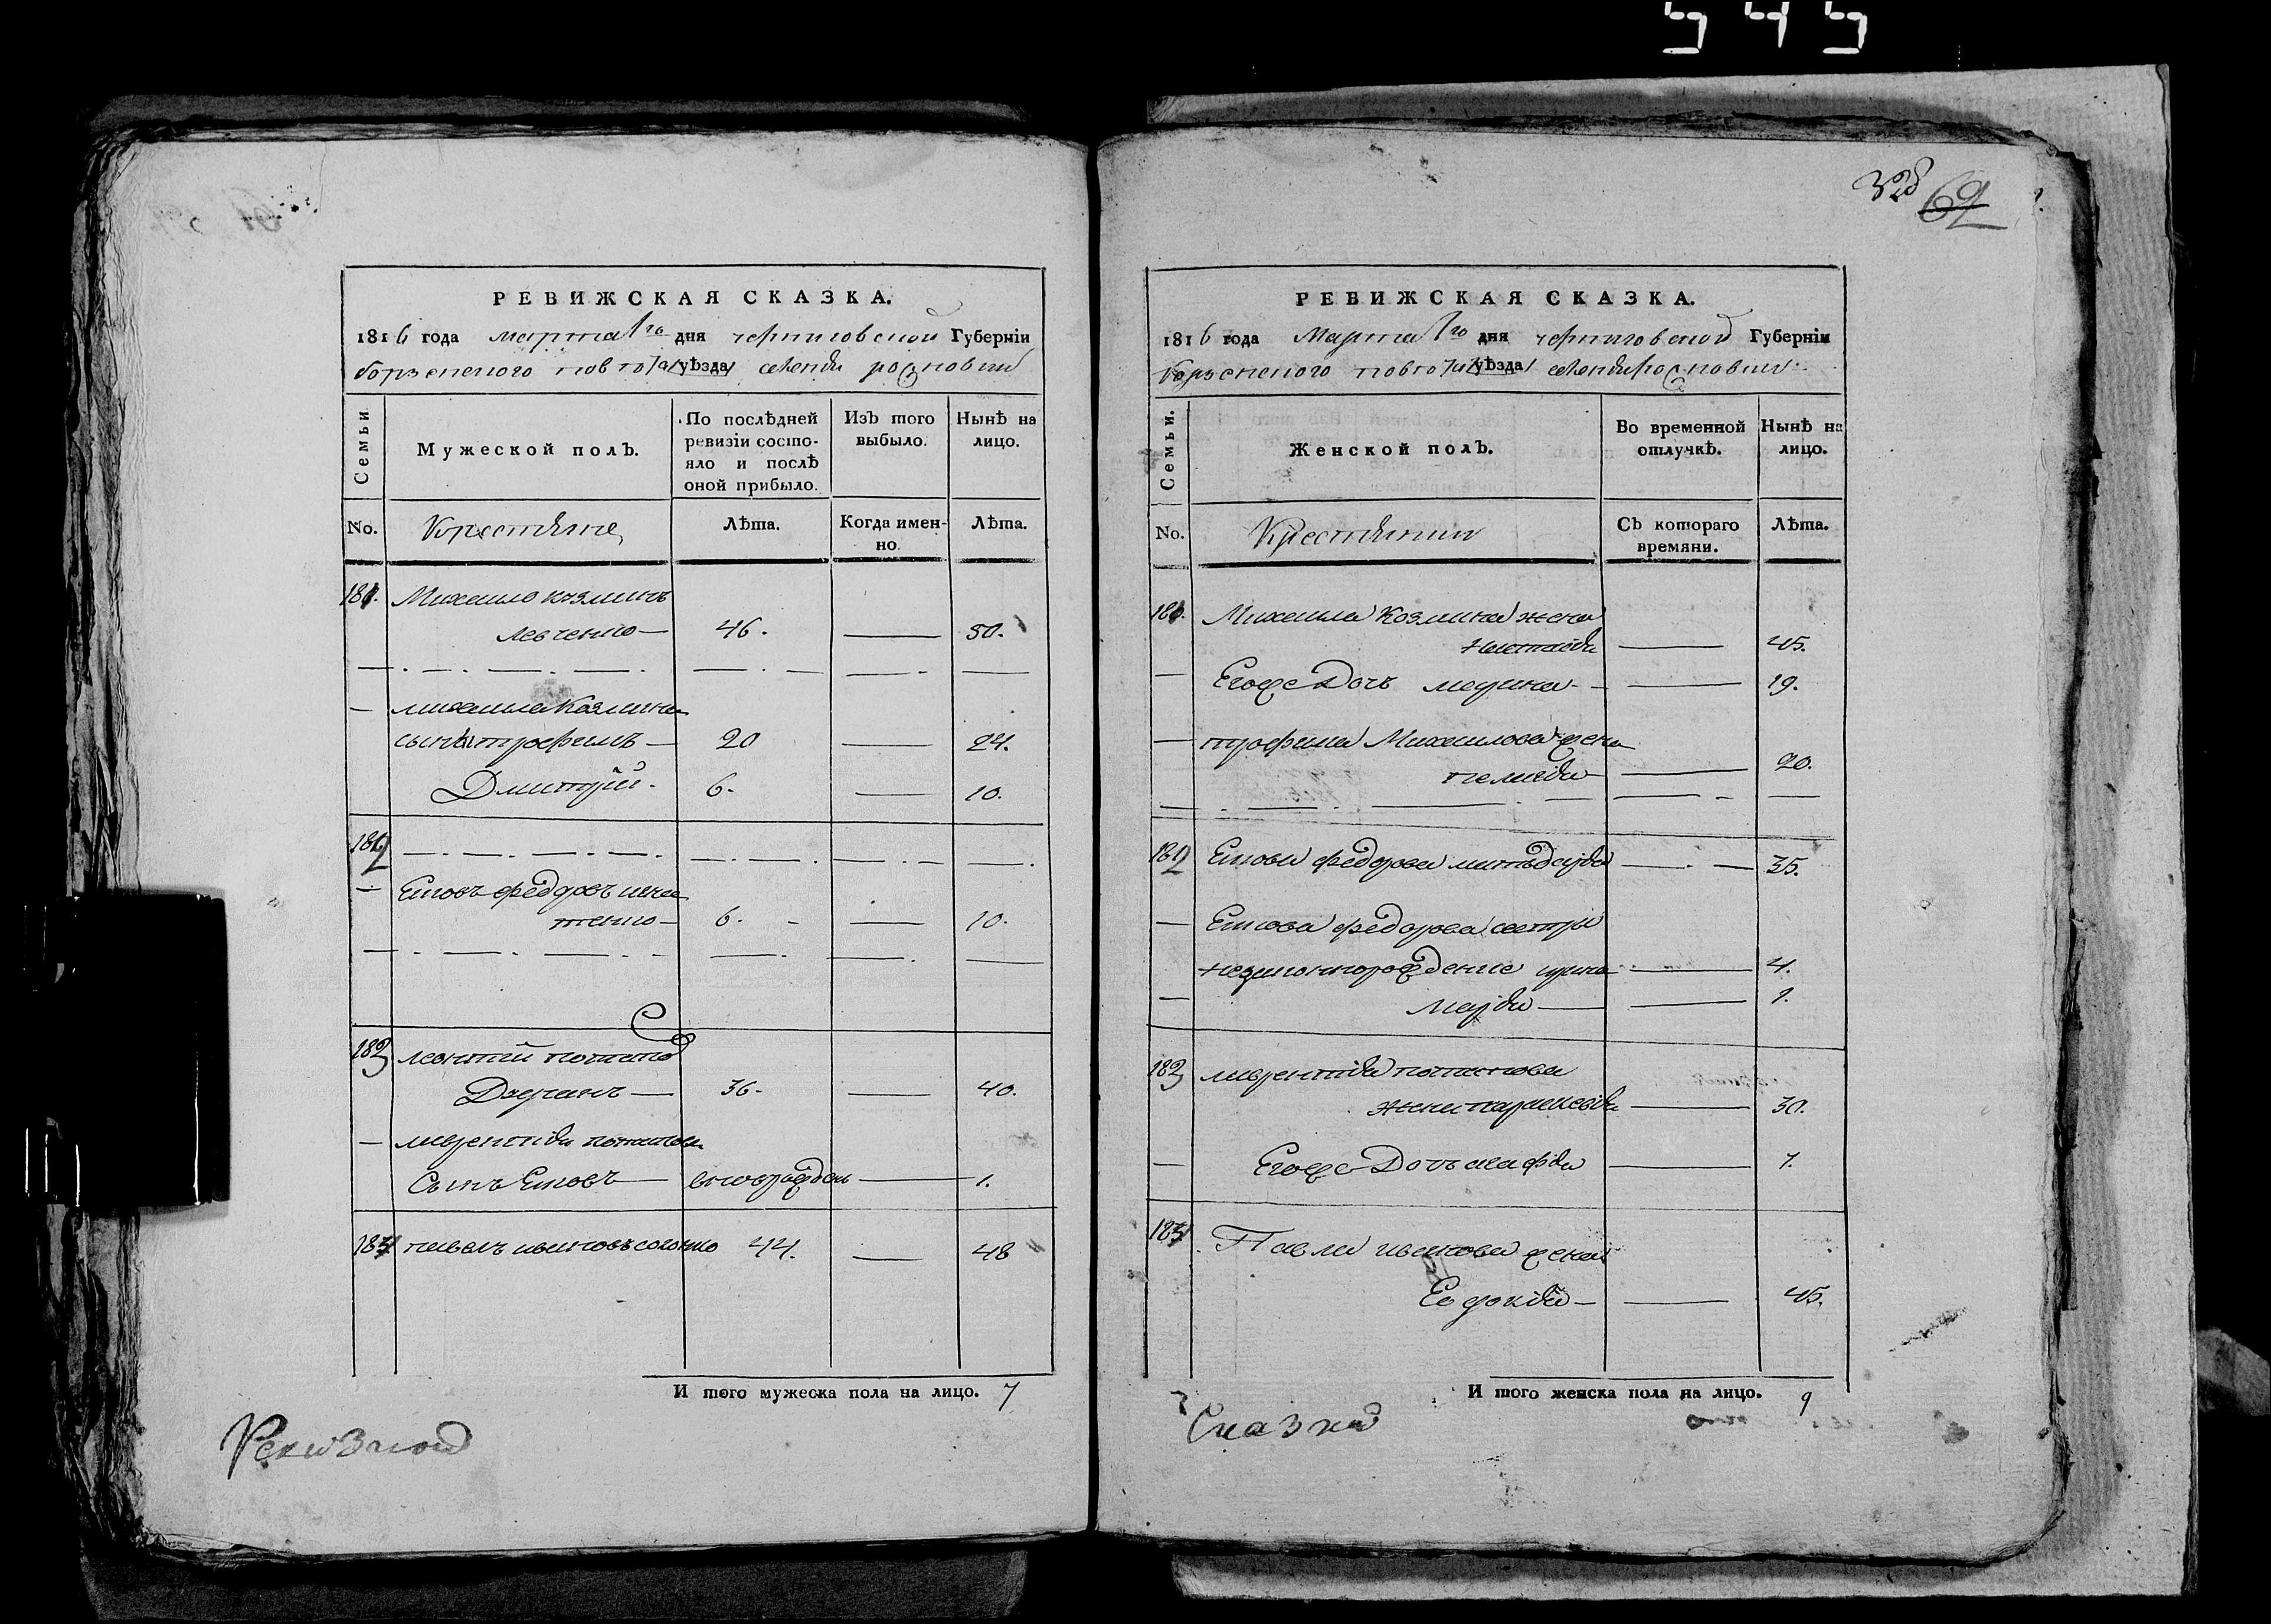 545
РЕВИЖСКАЯ СКАЗКА.
1816 года марта 1го дня черниговской Губернiи
борзенского повѣта /уѣзда/
Семьи.
Мужеской полЪ.
По послѣдней ревизiи состояло и послѣ оной прибыло.
ИзЪ того выбыло.
Нынѣ на лицо.
No.
Крестяне
Лѣта.
Когда именно.
Лѣта.
181. Михаило козминъ
левченко — 46. — 50.
— михаила козмина
сынъ трофимъ — 20 — 24.
Дмитрiй. 6. — 10.
182
— Яковъ федоровъ
6. — 10.
183 леонтiй потапов
36 — 40.
— лаврентiя потапова
Сынъ Яковъ — новорожден — 1.
184 павелъ ивановъ 44. — 48
И того мужеска пола на лицо. 7
Ревизкой
328 62
РЕВИЖСКАЯ СКАЗКА.
1816 года Марта 1го дня черниговской Губернiи
борзенского повѣта /уѣзда/
Семьи.
Женской полЪ.
Во временной отлучкѣ.
Нынѣ на лицо.
No.
Крестянки
СЪ котораго времяни.
Лѣта.
181. Михаила Козмина жена
Настасiя — 45.
— Егоже Дочь марина — 19.
— трофима Михаилова жена
пелагiя — 20.
182 Якова федорова мать — 35.
— Якова федорова сестры
незаконнорожденые ирина — 4.
— марiя — 1.
183 лаврентiя потапова
жена параскевiя — 30.
— Егоже Дочь агафiя — 7.
184 Павла иванова жена
Евдокiя — 45.
И того женска пола на лицо. 9
Сказки